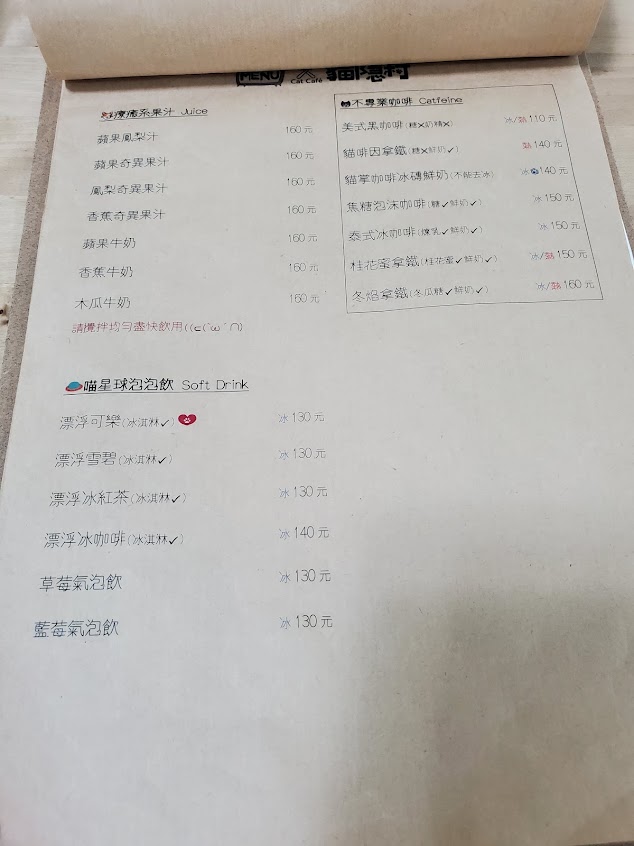 MENU Cat Café 貓隱村
療癒系果汁 Juice
蘋果鳳梨汁 160元
蘋果奇異果汁 160元
鳳梨奇異果汁 160元
香蕉奇異果汁 160元
蘋果牛奶 160元
香蕉牛奶 160元
木瓜牛奶 160元
請攪拌均勻盡快飲用
不專業咖啡 Catfeine
美式黑咖啡(糖✕奶精✕) 冰/熱110元
貓啡因拿鐵(糖✕鮮奶✓) 熱140元
貓掌咖啡冰磚鮮奶(不能去冰) 冰140元
焦糖泡沫咖啡(糖✓鮮奶✓) 冰150元
泰式冰咖啡(煉乳✓鮮奶✓) 冰150元
桂花蜜拿鐵(桂花蜜✓鮮奶✓) 冰/熱150元
冬焰拿鐵(冬瓜糖✓鮮奶✓) 冰/熱160元
喵星球泡泡飲 Soft Drink
漂浮可樂(冰淇淋✓) 冰130元
漂浮雪碧(冰淇淋✓) 冰130元
漂浮冰紅茶(冰淇淋✓) 冰130元
漂浮冰咖啡(冰淇淋✓) 冰140元
草莓氣泡飲 冰130元
藍莓氣泡飲 冰130元